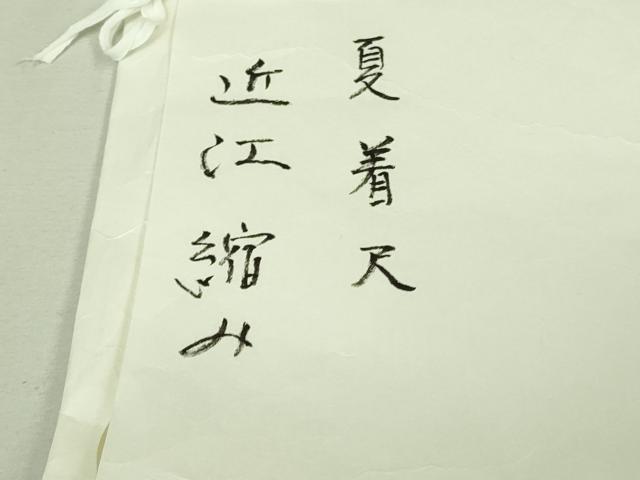 夏着尺
近江縮み